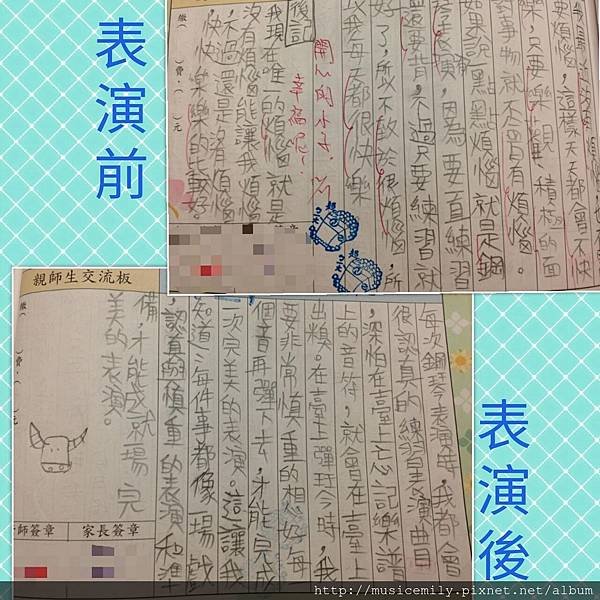 表演前
要煩惱，這樣天天都會不快
樂，只要樂觀、積極的面
對事物就不會有煩惱。
如果說一點點煩惱就是鋼
琴表演，因為要一直練習
還要背，不過只要練習就
以我每天都很快樂
開心的小子
幸福呢！
後記
我現在唯一的煩惱就是
沒有煩惱能讓我煩惱
，不過還是沒有煩惱
快快樂樂的比較好
表演後
每次鋼琴表演時，我都會
很認真的練習表演曲目
，深怕在臺上忘記樂譜
上的音符，就會在臺上
出糗。在臺上彈琴時，我
要非常慎重的想好每
個音再彈下去，才能完成
一次完美的表演。這讓我
知道：每件事都像一場戲
，認真慎重的表演和準
備，才能成就一場完
美的表演。
親師生交流板
師簽章
家長簽章
http://musicemily.pixnet.net/album